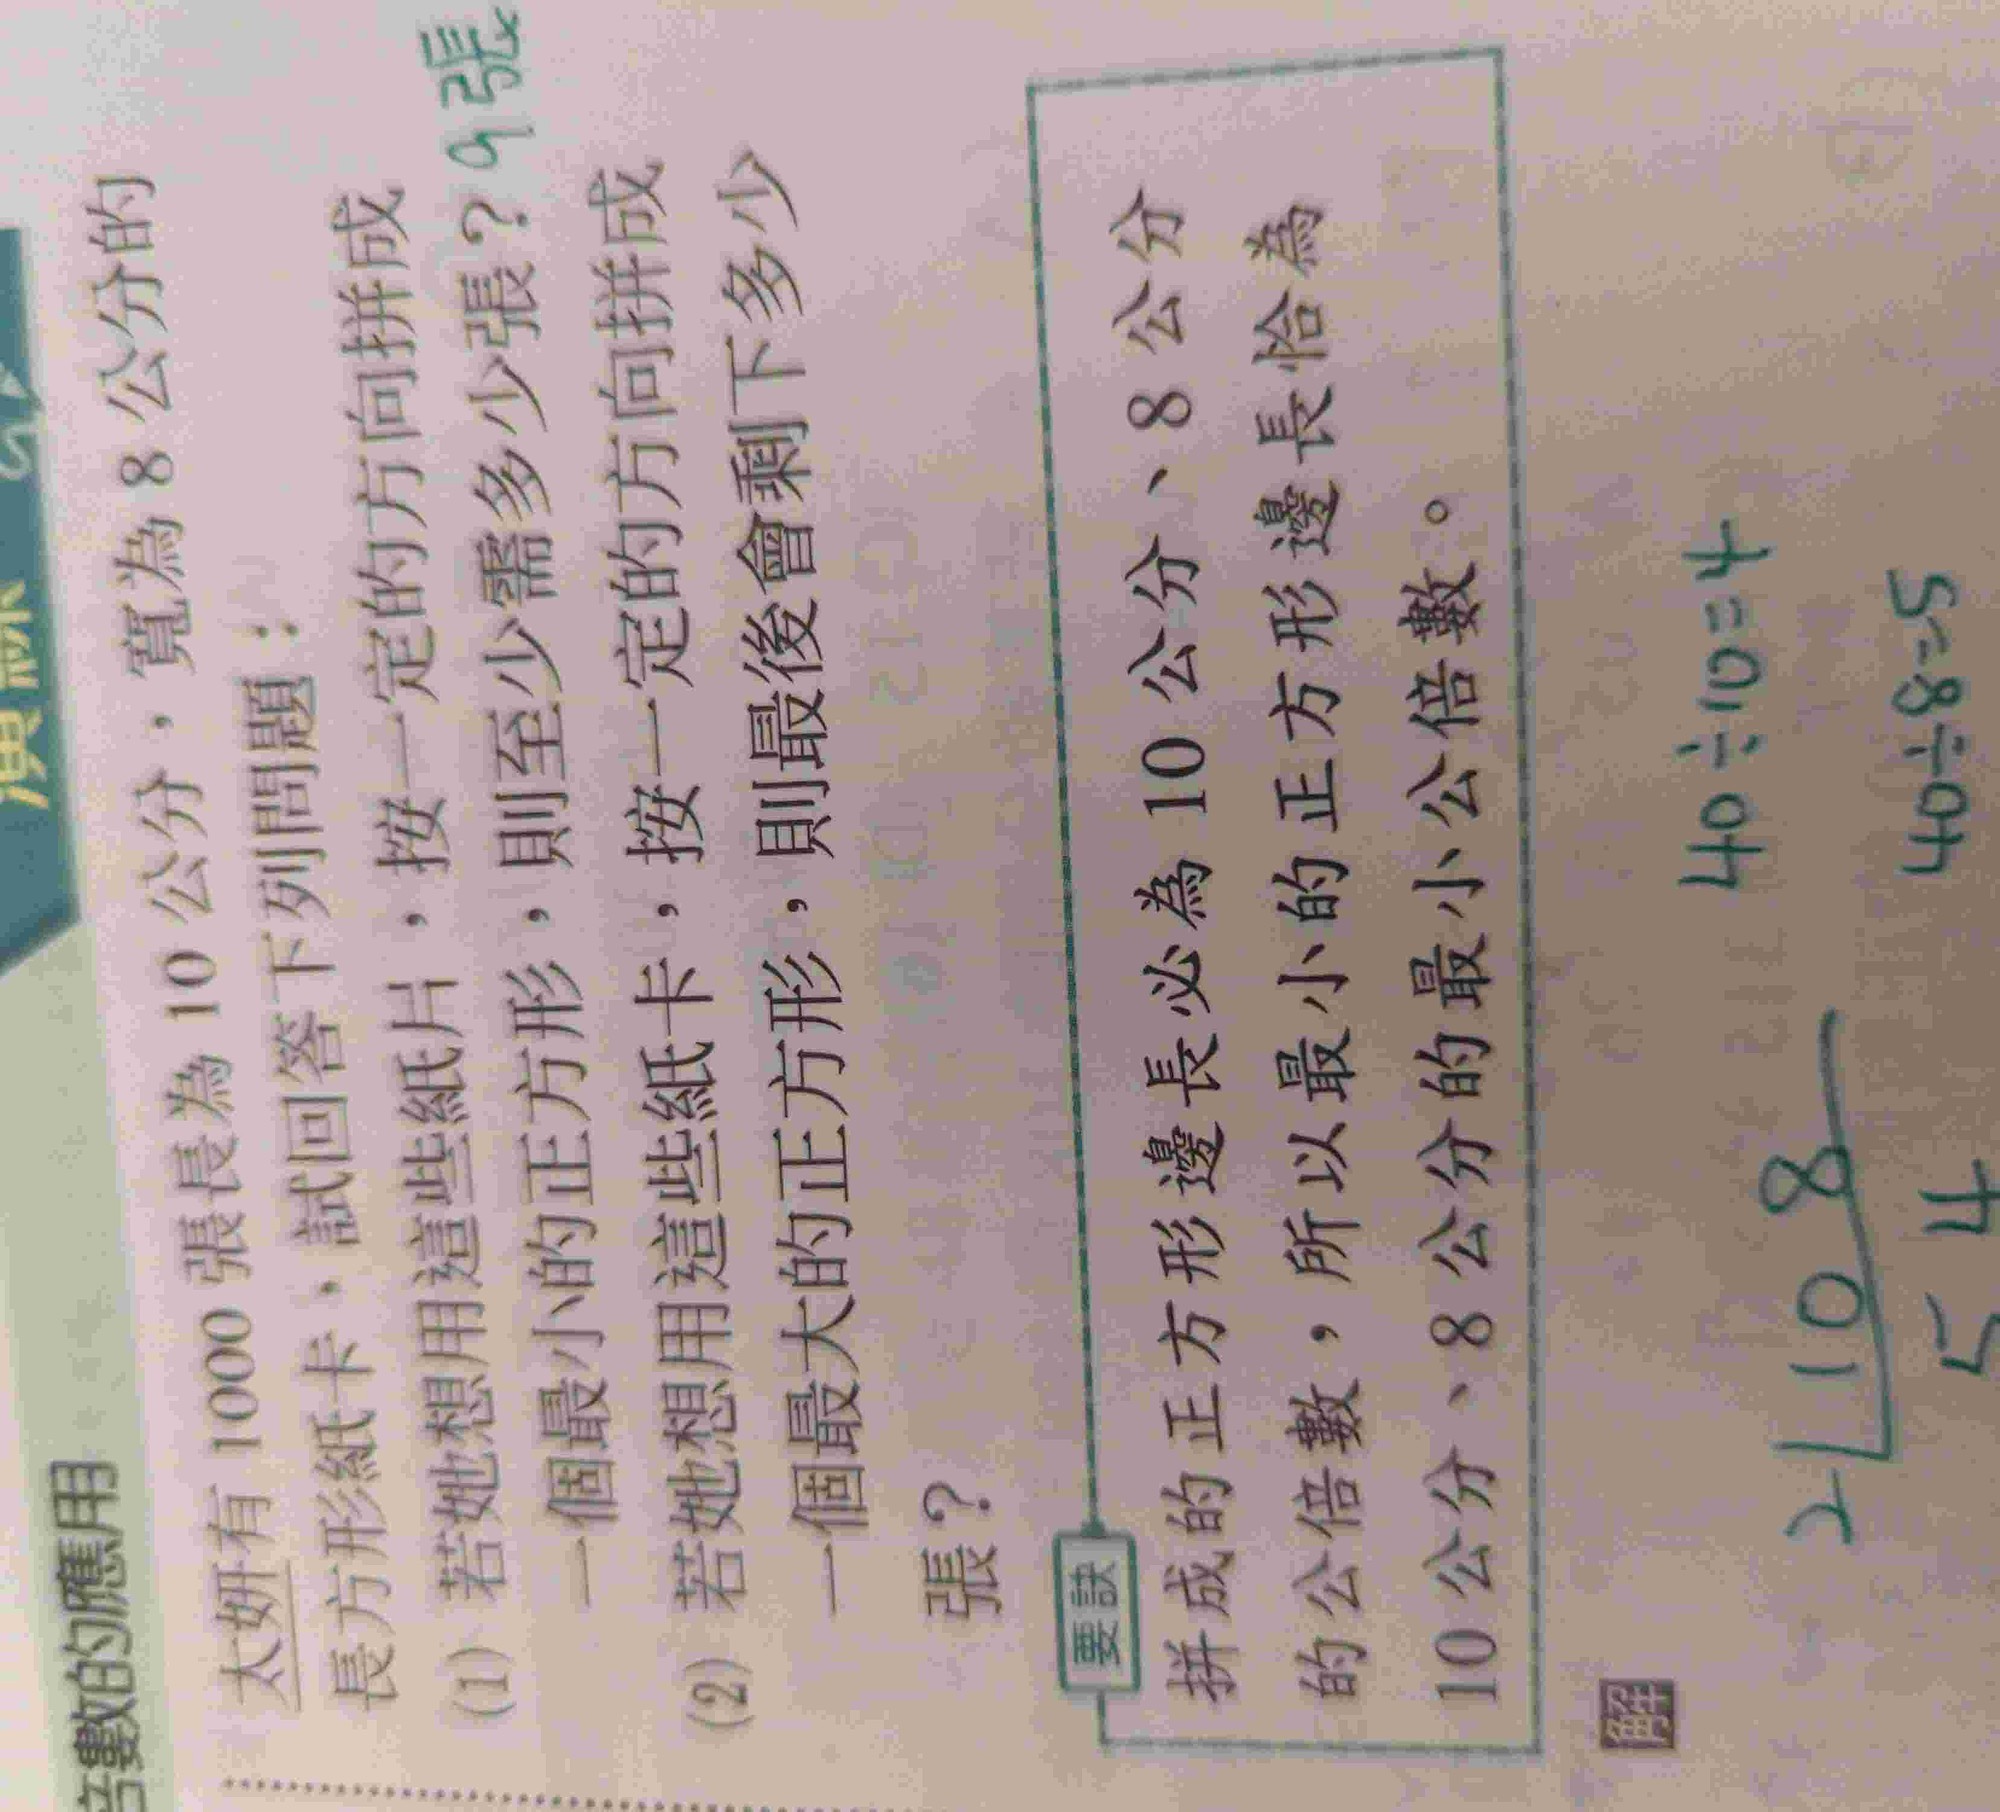 倍數的應用
演練
太妍有 1000 張長為 10 公分，寬為 8 公分的
長方形紙卡，試回答下列問題：
(1) 若她想用這些紙片，按一定的方向拼成
一個最小的正方形，則至少需多少張？9張
(2) 若她想用這些紙卡，按一定的方向拼成
一個最大的正方形，則最後會剩下多少
張？
要訣
拼成的正方形邊長必為 10 公分、8 公分
的公倍數，所以最小的正方形邊長恰為
10 公分、8 公分的最小公倍數。
解
2 10 8
5 4
40÷10=4
40÷8=5